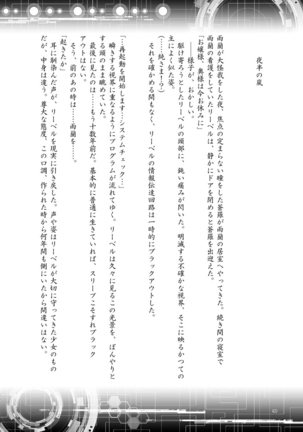 夜半の嵐
雨蘭が大怪我をした夜、焦点の定まらない瞳をした蒼羅が雨蘭の居室へやってきた。続き間の寝室で
雨蘭の看護をしていたリーベルは、静かにドアを閉めると蒼羅を出迎えた。
「お嬢様、奥様は今お休みに」
様子が、おかしい。
駆け寄ろうとしたリーベルの頭部に、鈍い痛みが閃いた。明滅する不確かな視界、そこに映るかつての
主によく似た姿。
(……純さま…?)
それを確かめる間もなく、リーベルの情報伝達回路は一時的にブラックアウトした。
「…再起動を開始します…システムチェック…」
瞬きする視界に重なるようにプログラムが流れてゆく。リーベルは久々に見るこの光景を、ぼんやりと
する頭のまま眺めていた。
最後に見たのは……もう十数年前だ。基本的に普通に生きていれば、スリープこそすれブラック
アウトはない。
そう、前のあの時は――雨蘭を……。
「起きたか」
耳に馴染んだ声が、リーベルを現実に引き戻した。声や姿はリーベルが大切に守ってきた少女のもの
だが、中身は違う。尊大な態度、この口調。作られた時から何年間も側にいたから間違いはない。